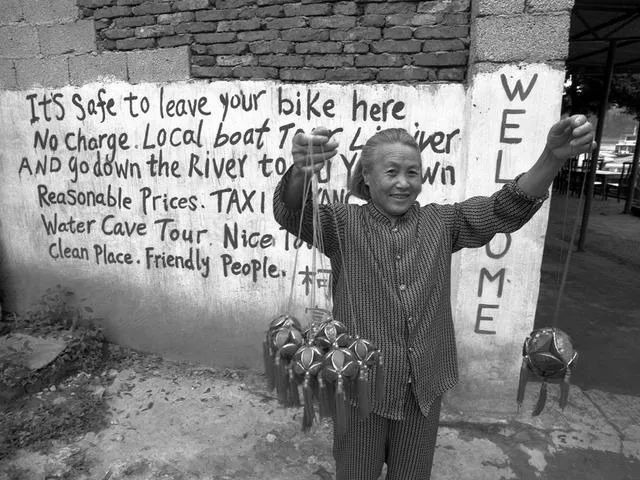 It's Safe to leave your bike here
No Charge. Local boat Li River
AND go down the River to
Reasonable Prices. TAXI
Water Cave Tour. Nice
Clean Place. Friendly People.
柯
WELCOME